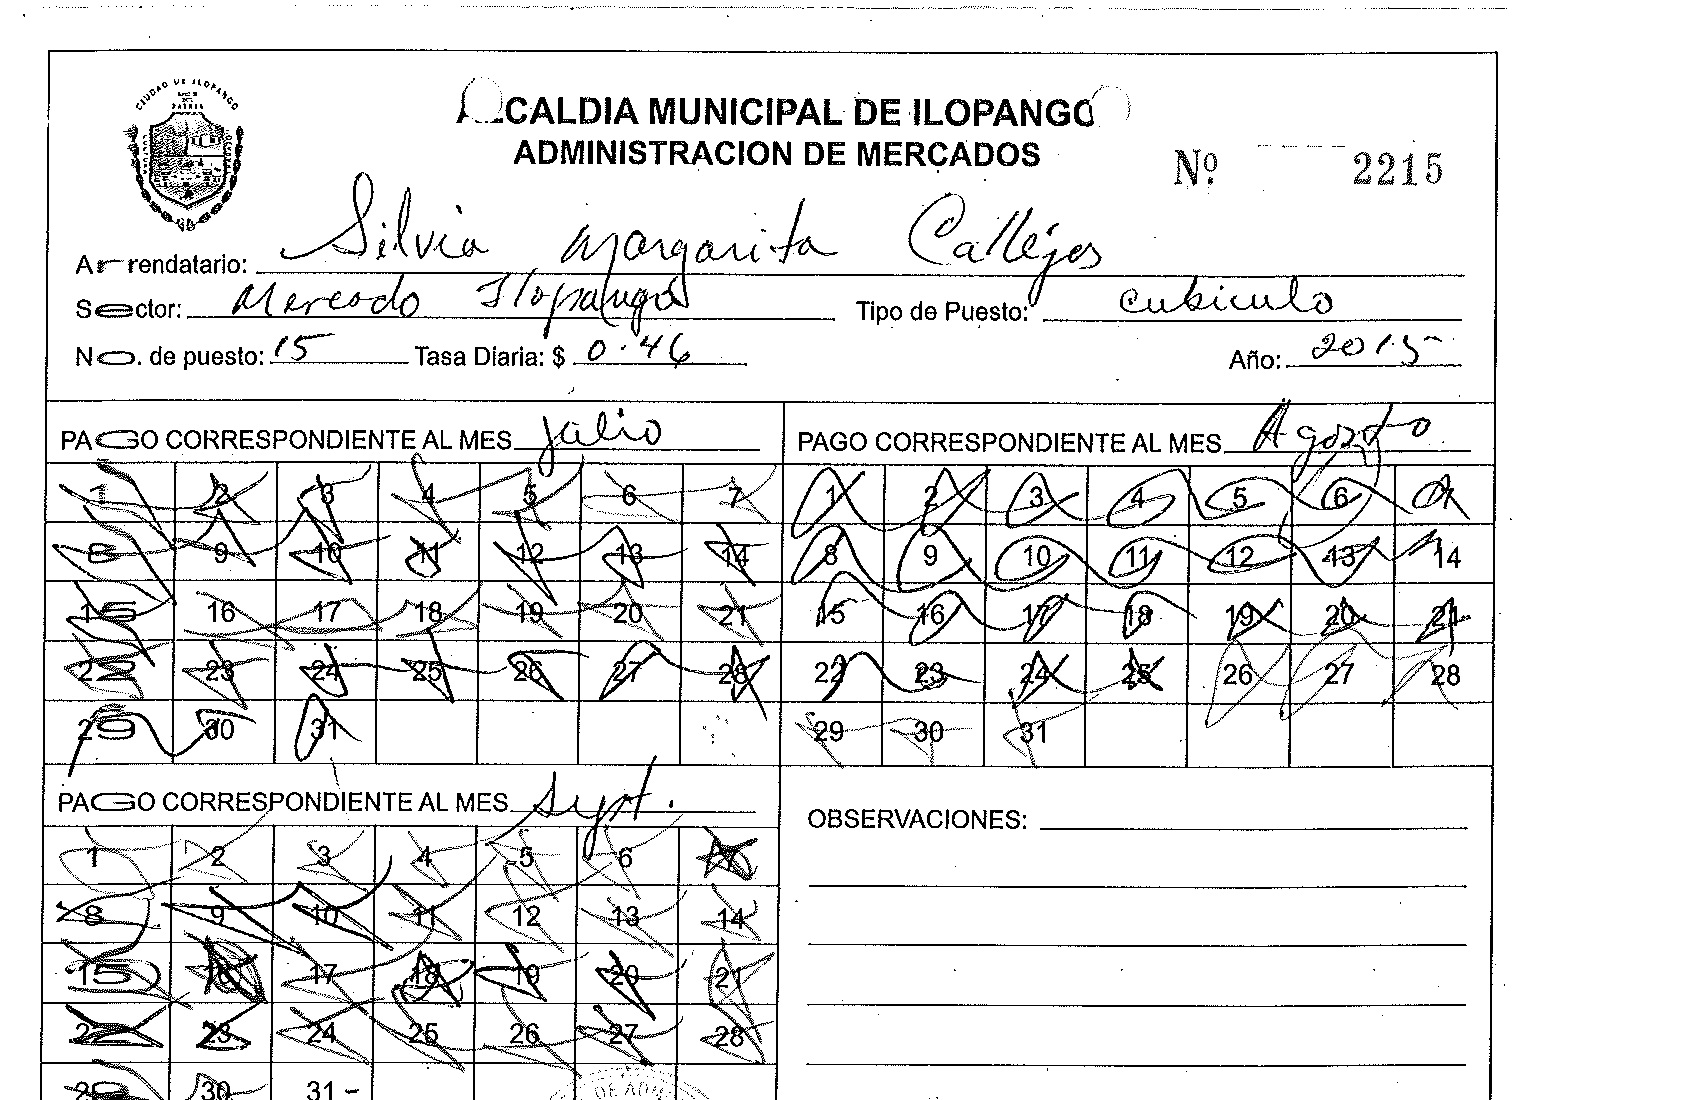 CIUDAD DE ILOPANGO
ALCALDIA MUNICIPAL DE ILOPANGO
ADMINISTRACION DE MERCADOS
Nº 2215
Arrendatario: Silvia Margarita Callejas
Sector: Mercado Ilopango Tipo de Puesto: cubiculo
No. de puesto: 15 Tasa Diaria: $ 0.46 Año: 2015
PAGO CORRESPONDIENTE AL MES Julio
1 2 3 4 5 6 7
8 9 10 11 12 13 14
15 16 17 18 19 20 21
22 23 24 25 26 27 28
29 30 31
PAGO CORRESPONDIENTE AL MES Agosto
1 2 3 4 5 6 7
8 9 10 11 12 13 14
15 16 17 18 19 20 21
22 23 24 25 26 27 28
29 30 31
PAGO CORRESPONDIENTE AL MES Sept.
1 2 3 4 5 6 7
8 9 10 11 12 13 14
15 16 17 18 19 20 21
22 23 24 25 26 27 28
29 30 31 -
OBSERVACIONES: